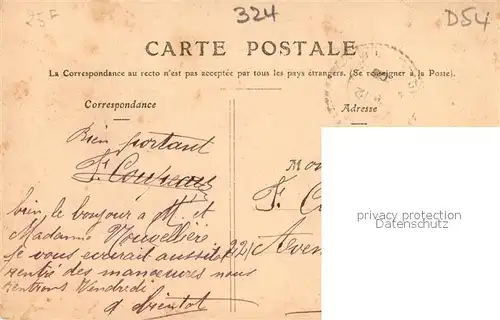 25F
324
D54
CARTE POSTALE
La Correspondance au recto n'est pas acceptée par tous les pays étrangers. (Se renseigner à la Poste).
Correspondance
Adresse
Bien portant
F. Coupeaux
bien le bonjour à M. et
Madame Nouvellière
je vous écrirait aussitôt
rentré des manœuvres nous
rentrons Vendredi
a bientot
Mon
F. C
22 Aven
privacy protection
Datenschutz